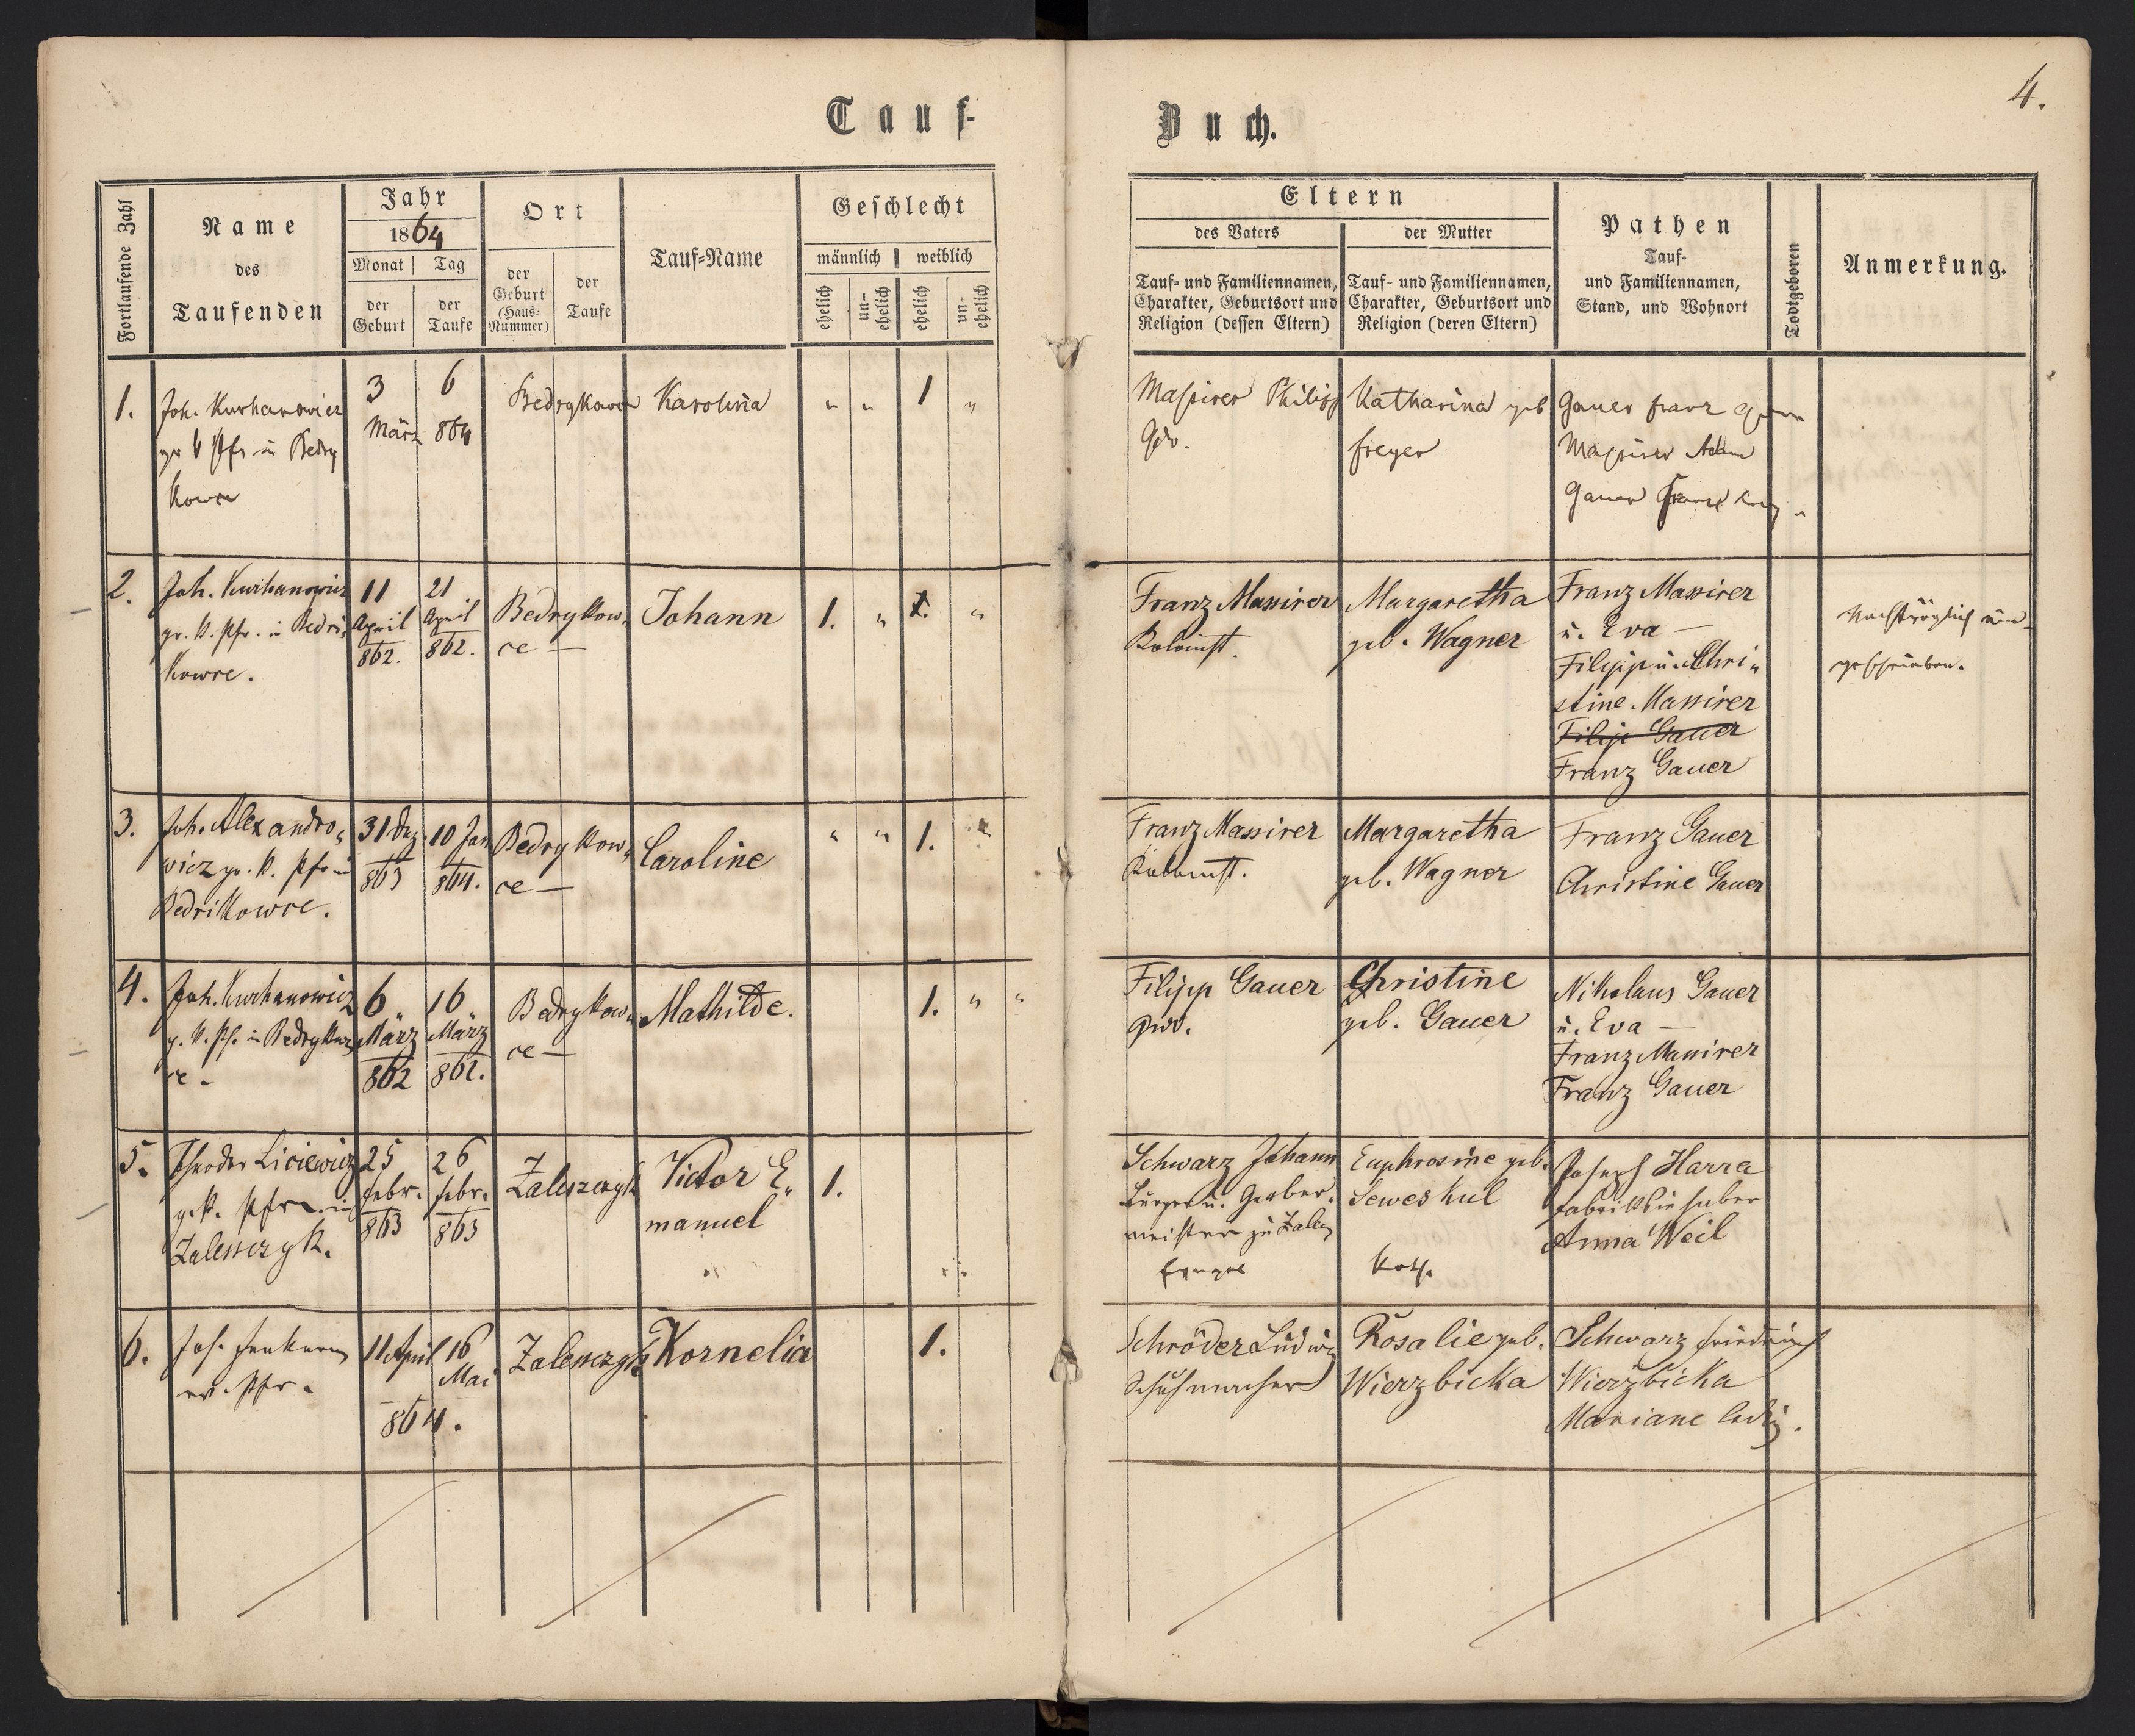 Tauf-
Buch.
4.
Fortlaufende Zahl
Name
des
Taufenden
Jahr
1864
Monat
Tag
der
Geburt
der
Taufe
Ort
der
Geburt
(Haus-
Nummer)
der
Taufe
Tauf-Name
Geschlecht
männlich
weiblich
ehelich
un-
ehelich
ehelich
un-
ehelich
Eltern
des Vaters
der Mutter
Tauf- und Familiennamen,
Charakter, Geburtsort und
Religion (dessen Eltern)
Tauf- und Familiennamen,
Charakter, Geburtsort und
Religion (deren Eltern)
Pathen
Tauf-
und Familiennamen,
Stand, und Wohnort
Todtgeboren
Anmerkung.
1.
Joh. Kurhanowicz
gr k Pfr in Bedry
kowce
3
März
6
864
Karolina
" "
1
"
Massirer Philipp
Katharina geb
freyer
Gauer franz
Massirer Adam
Gauer
2.
Joh. Kurhanowicz
gr. k. Pfr. in Bedri,
kowce.
11
April
862.
21
April
862.
Bedrykow,
ce —
Johann
1.
"
1.
"
Franz Massirer
Kolonist.
Margaretha
geb. Wagner
Franz Massirer
u. Eva —
Filipp u. Chri„
stine Massirer
Filip Gauer
Franz Gauer
Nachträglich ein-
geschrieben.
3.
Joh. Alexandro,
wicz gr. k. Pfr in
Bedrikowce.
31 Dez.
863
10 Jan
864.
Bedrykow,
ce —
Caroline
" "
1.
"
Franz Massirer
Kolonist.
Margaretha
geb. Wagner
Franz Gauer
Christine Gauer
4.
Joh. Kurhanowicz
g. k. Pf. in Bedrykow,
ce.
6
März
862
16
März
862.
Bedrykow,
ce —
Mathilde.
1.
" "
Filipp Gauer
Christine
geb. Gauer
Nikolaus Gauer
u. Eva —
Franz Massirer
Franz Gauer
5.
Theodor Liciewicz
g. k. Pfr. in
Zaleszczyk.
25
febr.
863
26
febr.
863
Zaleszczyk
Victor E,
manuel
1.
Schwarz Johann
Bürger u. Gerber,
meister zu Zalesz
Euphrosine geb.
Seweskul
Kath.
Joseph Harra
Fabriksinhaber
Anna Weil
6.
Joh.
ev. Pfr.
11 April
16
Mai
864.
Zaleszczyk
Kornelia
1.
Schröder Ludwig
Schuhmacher
Rosalie geb.
Wierzbicka
Schwarz Friedrich
Wierzbicka
Mariane ledig.